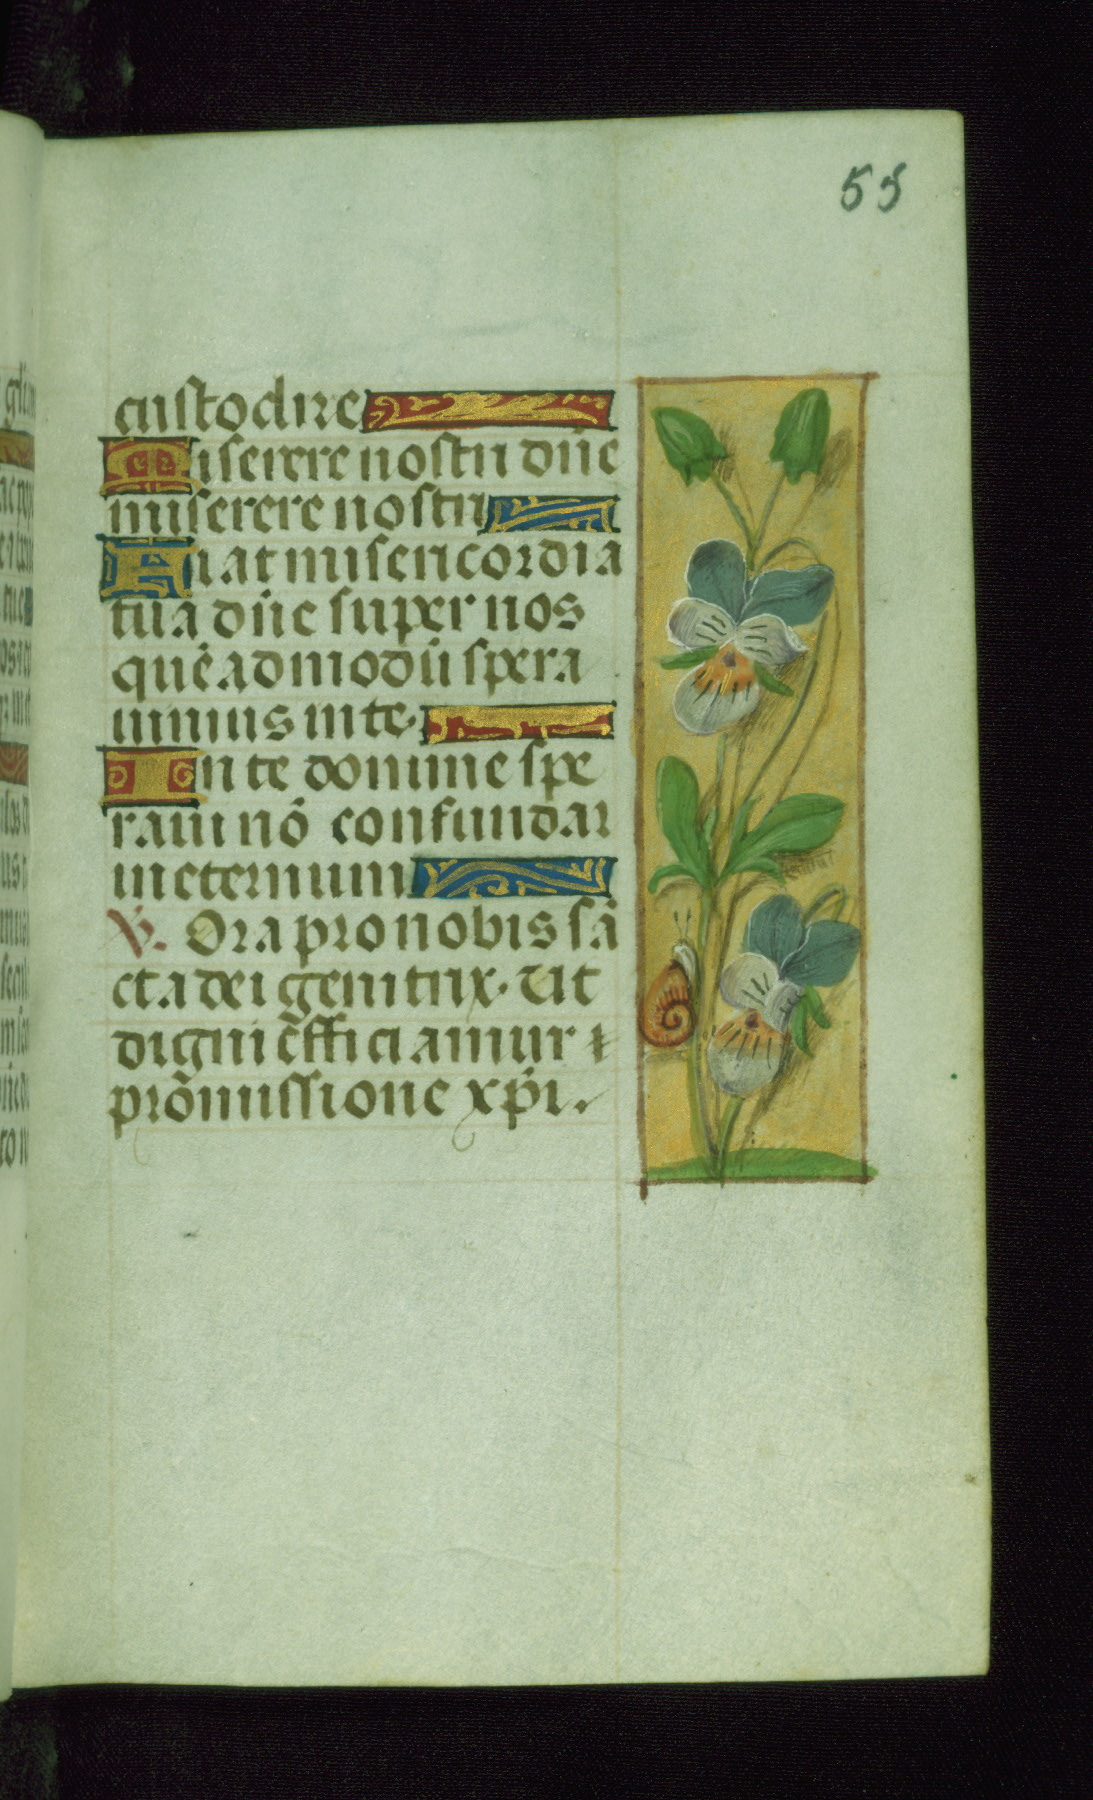 55
custodire
Miserere nostri dn̄e
miserere nostri
Fiat misericordia
tua dn̄e super nos
quēadmodū spera
uimus in te.
In te domine spe
raui nō confundar
in eternum
V̇. Ora pro nobis sā
cta dei genitrix. Ut
digni effici amur
prōmissione xp̄i.